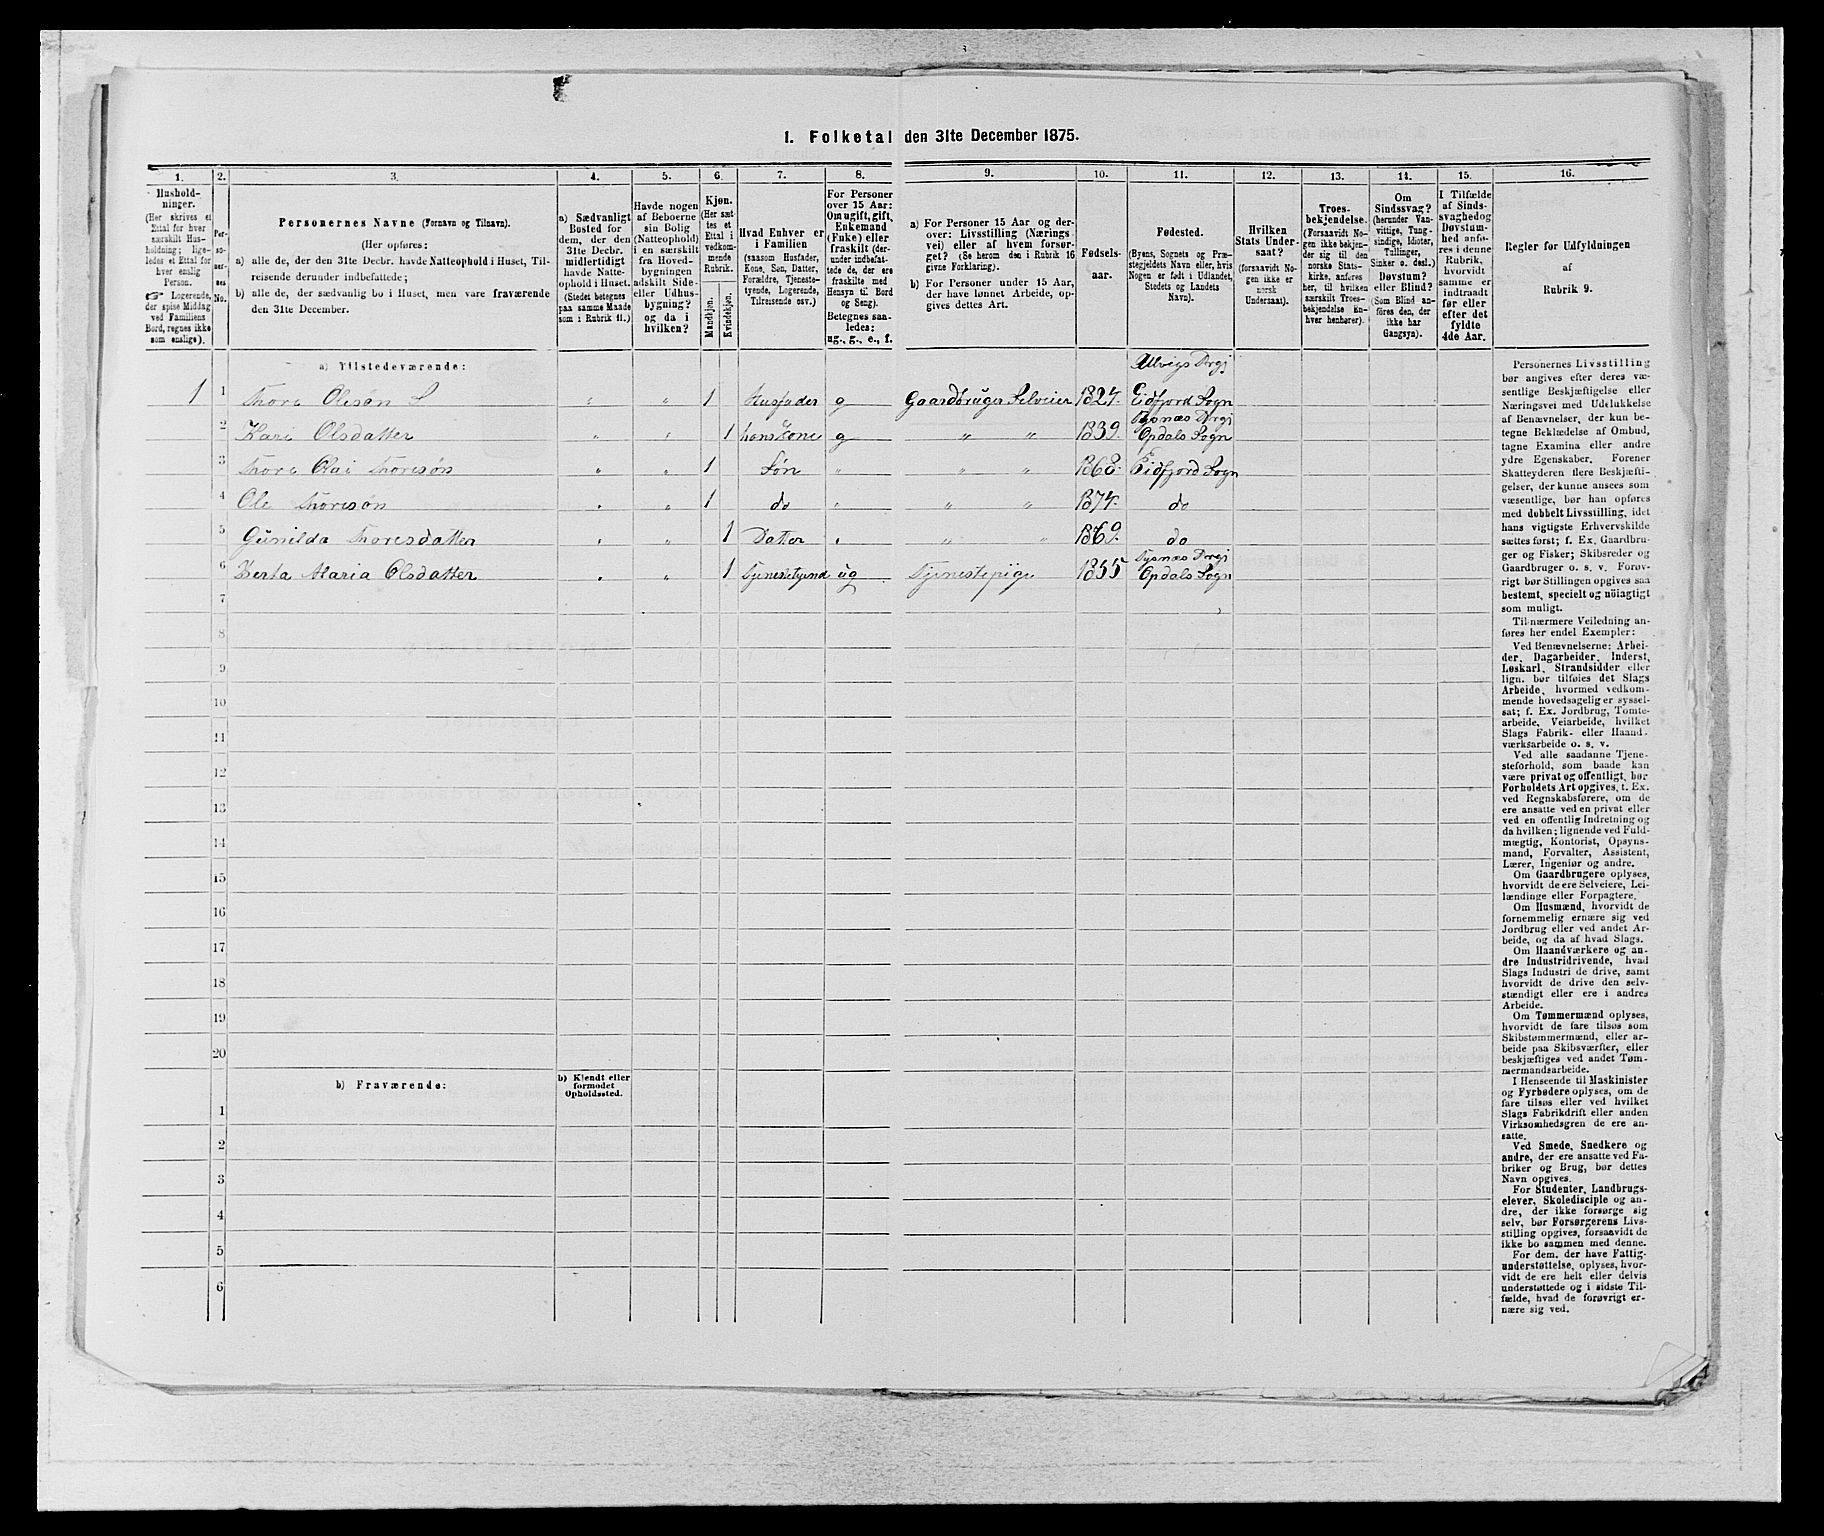 1. Folketal den 31te December 1875.
1. 2. 3. 4. 5. 6. 7. 8. 9. 10. 11. 12. 13. 14. 15. 16.
Hushold-
ninger.
(Her skrives et
Ettal for hver
særskilt Hus-
holdning; lige-
ledes et Ettal for
hver enslig
Person.
☞ Logerende,
der spise Middag
ved Familiens
Bord, regnes ikke
som enslige).
Per-
so-
ner-
nes
No.
Personernes Navne (Fornavn og Tilnavn).
(Her opføres:
a) alle de, der den 31te Decbr. havde Natteophold i Huset, Til-
reisende derunder indbefattede;
b) alle de, der sædvanlig bo i Huset, men vare fraværende
den 31te December.
a) Sædvanligt
Bosted for
dem, der den
31te Decbr.
midlertidigt
havde Natte-
ophold i Huset.
(Stedet betegnes
paa samme Maade
som i Rubrik 11.)
Havde nogen
af Beboerne
sin Bolig
(Natteophold)
i en særskilt
fra Hoved-
bygningen
adskilt Side-
eller Udhus-
bygning?
og da i
hvilken?
Kjøn.
(Her sæt-
tes et
Ettal i
vedkom-
mende
Rubrik.
Mandkjøn.
Kvindekjøn.
Hvad Enhver er
i Familien
(saasom Husfader,
Kone, Søn, Datter,
Forældre, Tjeneste-
tyende, Logerende,
Tilreisende osv.)
For Personer
over 15 Aar:
Om ugift, gift,
Enkemand
(Enke) eller
fraskilt (der-
under indbefat-
tede de, der ere
fraskilte med
Hensyn til Bord
og Seng).
Betegnes saa-
ledes:
ug., g., e., f.
a) For Personer 15 Aar og der-
over: Livsstilling (Nærings-
vei) eller af hvem forsør-
get? (Se herom den i Rubrik 16
givne Forklaring).
b) For Personer under 15 Aar,
der have lønnet Arbeide, op-
gives dettes Art.
Fødsels-
aar.
Fødested.
(Byens, Sognets og Præ-
stegjeldets Navn eller, hvis
Nogen er født i Udlandet,
Stedets og Landets
Navn).
Hvilken
Stats Under-
saat?
(forsaavidt No-
gen ikke er
norsk
Undersaat).
Troes-
bekjendelse.
(Forsaavidt No-
gen ikke bekjen-
der sig til den
norske Stats-
kirke, anføres
her, til hvilken
særskilt Troes-
bekjendelse En-
hver henhører).
Om
Sindssvag?
(herunder Van-
vittige, Tung-
sindige, Idioter,
Tullinger,
Sinker o. desl.)
Døvstum?
eller Blind?
(Som Blind an-
føres den, der
ikke har
Gangsyn).
I Tilfælde
af Sinds-
svaghed og
Døvstum-
hed anfø-
res i denne
Rubrik,
hvorvidt
samme er
indtraadt
før eller
efter det
fyldte
4de Aar.
Regler for Udfyldningen
af
Rubrik 9.
a) Tilstedeværende: Ulvigs Prgj
1 1 Thore Olesøn S " " 1 Husfader g Gaardbruger Selveier 1824. Eidfjord Sogn
Tysnæs Prgj
2 Kari Olsdatter " " 1 hans Kone g " " 1839. Opdals Sogn
3 Thore Olai Thoresøn " " 1 Søn " " " 1868. Eidfjord Sogn
4 Ole Thoresøn " " 1 do " " " 1874. do
5 Gunilda Thoresdatter " " 1 Datter " " " 1869. do
Tysnæs Prgj
6 Berta Maria Olsdatter " " 1 Tjenestetyend ug Tjenestepige 1855 Opdals Sogn
7
8
9
10
11
12
13
14
15
16
17
18
19
20
b) Fraværende:
b) Kjendt eller
formodet
Opholdssted.
1
2
3
4
5
6
Personernes Livsstilling
bør angives efter deres væ-
sentlige Beskjæftigelse eller
Næringsvei med Udelukkelse
af Benævnelser, der kun be-
tegne Beklædelse af Ombud,
tagne Examina eller andre
ydre Egenskaber. Forener
Skatteyderen flere Beskjæfti-
gelser, der kunne ansees som
væsentlige, bør han opføres
med dobbelt Livsstilling, idet
hans vigtigste Erhvervskilde
sættes først; f. Ex. Gaardbru-
ger og Fisker; Skibsreder og
Gaardbruger o. s. v. Forøv-
rigt bør Stillingen opgives saa
bestemt, specielt og nöiagtigt
som muligt.
Til nærmere Veiledning an-
føres her endel Exempler:
Ved Benævnelserne: Arbei-
der, Dagarbeider, Inderst,
Løskarl, Strandsidder eller
lign. bør tilføies det Slags
Arbeide, hvormed vedkom-
mende hovedsagelig er syssel-
sat; f. Ex. Jordbrug, Tomte-
arbeide, Veiarbeide, hvilket
Slags Fabrik- eller Haand-
værksarbeide o. s. v.
Ved alle saadanne Tjene-
steforhold, som baade kan
være privat og offentligt, bør
Forholdets Art opgives, t. Ex.
ved Regnskabsførere, om de
ere ansatte ved en privat eller
ved en offentlig Indretning og
da hvilken; lignende ved Fuld-
mægtig, Kontorist, Opsyns-
mand, Forvalter, Assistent,
Lærer, Ingeniør og andre.
Om Gaardbrugere oplyses,
hvorvidt de ere Selveiere, Lei-
lændinge eller Forpagtere.
Om Husmænd, hvorvidt de
fornemmelig ernære sig ved
Jordbrug eller ved andet Ar-
beide, og da af hvad Slags.
Om Haandværkere og an-
dre Industridrivende, hvad
Slags Industri de drive, samt
hvorvidt de drive den selv-
stændigt eller ere i andres
Arbeide.
Om Tømmermænd oplyses,
hvorvidt de fare tilsøs som
Skibstømmermænd, eller ar-
beide paa Skibsværfter, eller
beskjæftiges ved andet Tøm-
mermandsarbeide.
I Henseende til Maskinister
og Fyrbødere oplyses, om de
fare tilsøs eller ved hvilket
Slags Fabrikdrift eller anden
Virksomhedsgren de ere an-
satte.
Ved Smede, Snedkere og
andre, der ere ansatte ved Fa-
briker og Brug, bør dettes
Navn opgives.
For Studenter, Landbrugs-
elever, Skoledisciple og an-
dre, der ikke forsørge sig
selv, bør Forsørgerens Livs-
stilling opgives, forsaavidt de
ikke bo sammen med denne.
For dem, der have Fattig-
understøttelse, oplyses, hvor-
vidt de ere helt eller delvis
understøttede og i sidste Til-
fælde, hvad de forøvrigt er-
nære sig ved.